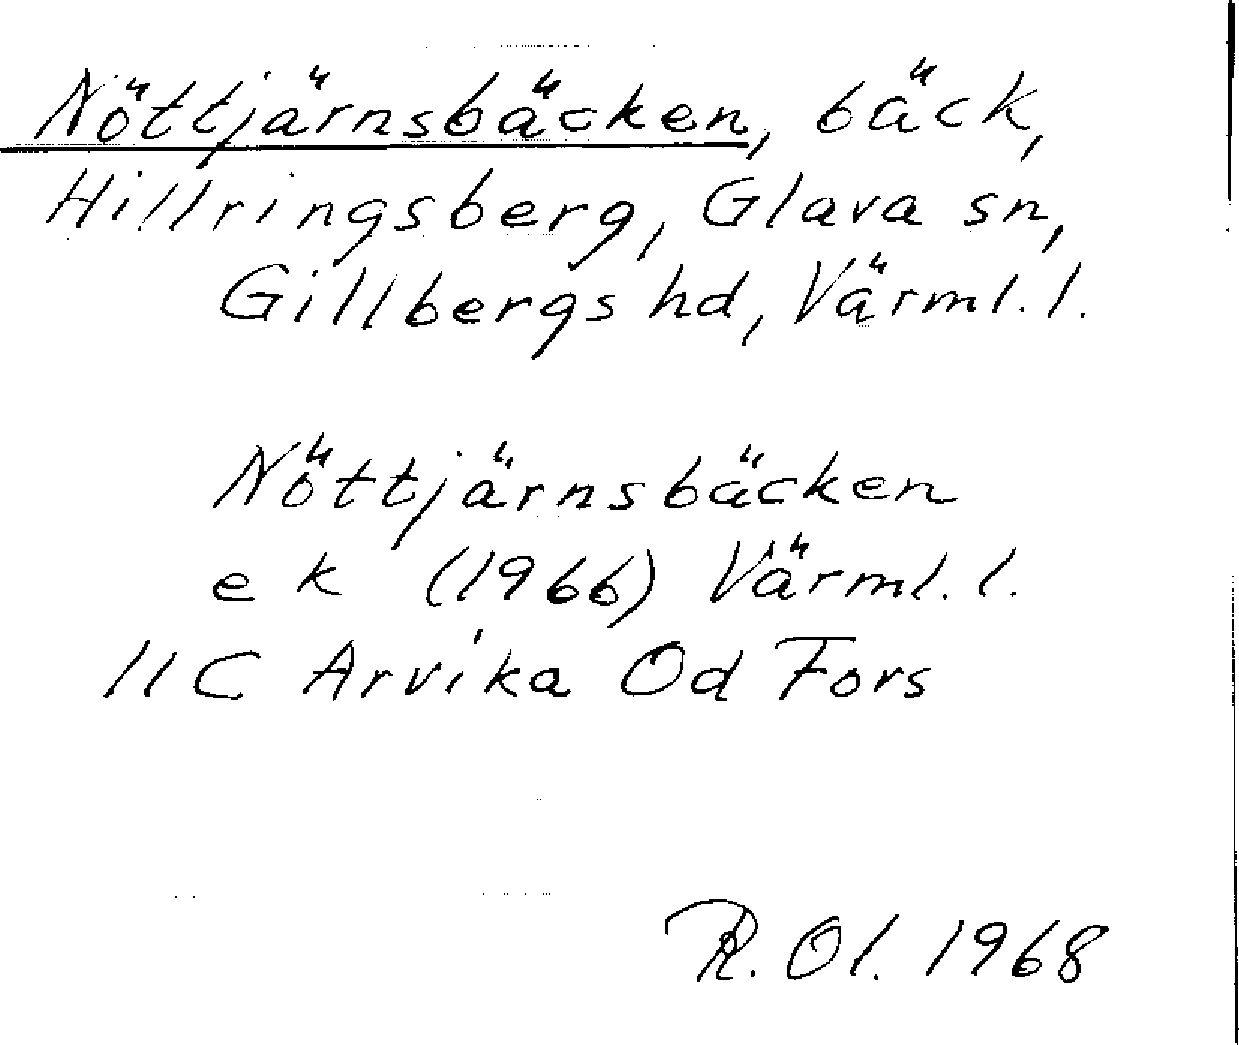 Nöttjärnsbäcken, bäck,
Hillringsberg, Glava sn,
Gillbergs hd, Värml. l.
Nöttjärnsbäcken
e k (1966) Värml. l.
11C Arvika Od Fors
R. Ol. 1968